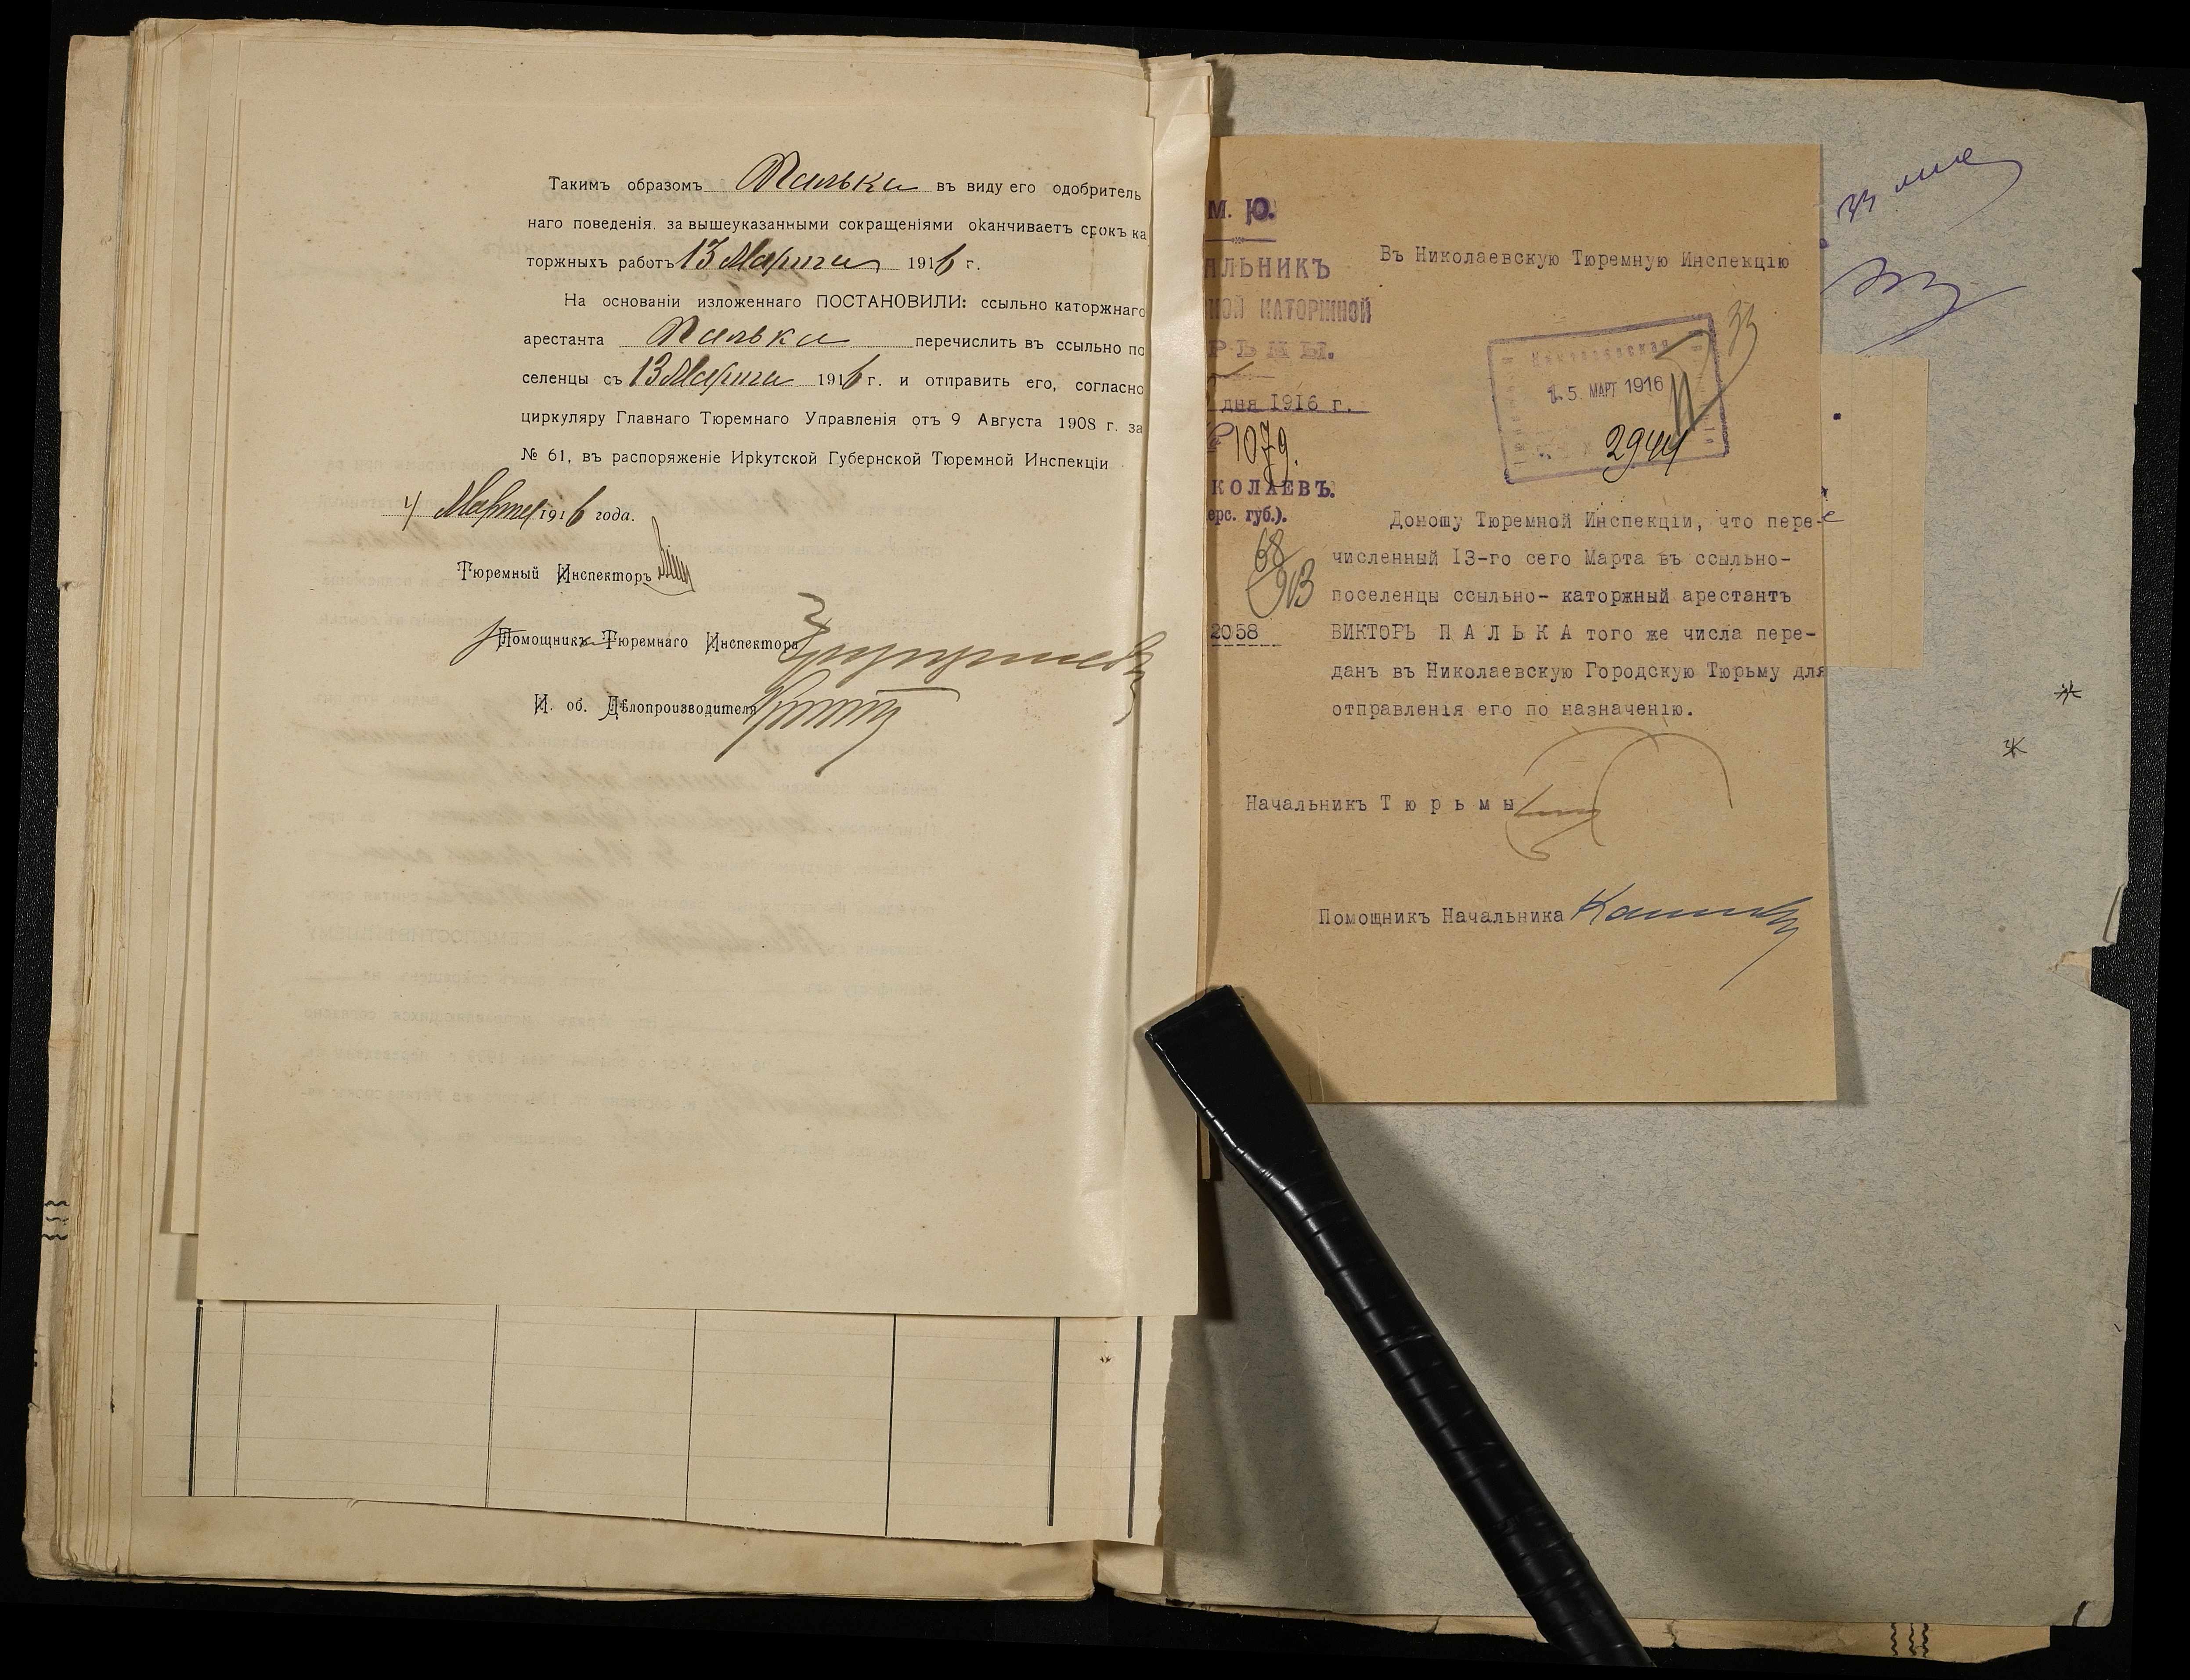 Такимъ образомъ Палька въ виду его одобритель
наго поведенія. за вышеуказанными сокращеніями оканчиваетъ срокъ ка
торжныхъ работъ 13 Марта 1916 г.
На основаніи изложеннаго ПОСТАНОВИЛИ: ссыльно каторжнаго
арестанта Палька перечислить въ ссыльно по
селенцы съ 13 Марта 1916 г. и отправить его, согласно
циркуляру Главнаго Тюремнаго Управленія отъ 9 Августа 1908 г. за
№ 61, въ распоряженіе Иркутской Губернской Тюремной Инспекціи
4 Марта 1916 года.
Тюремный Инспекторъ
Помощникъ Тюремнаго Инспектора
И. об. Дѣлопроизводителя
М. Ю.
АЛЬНИКЪ
НОЙ КАТОРЖНОЙ
РЬМЫ.
дня 1916 г.
1079.
КОЛАЕВЪ.
ерс. губ.).
68
913
2058
Въ Николаевскую Тюремную Инспекцію
33
Николаевская
15 МАРТ 1916
2944
Доношу Тюремной Инспекціи, что пере-
численный 13-го сего Марта въ ссыльно-
поселенцы ссыльно- каторжный арестантъ
ВИКТОРЬ П А Л Ь К А того же числа пере-
данъ въ Николаевскую Городскую Тюрьму для
отправленія его по назначенію.
Начальникъ Т ю р ь м ы
Помощникъ Начальника